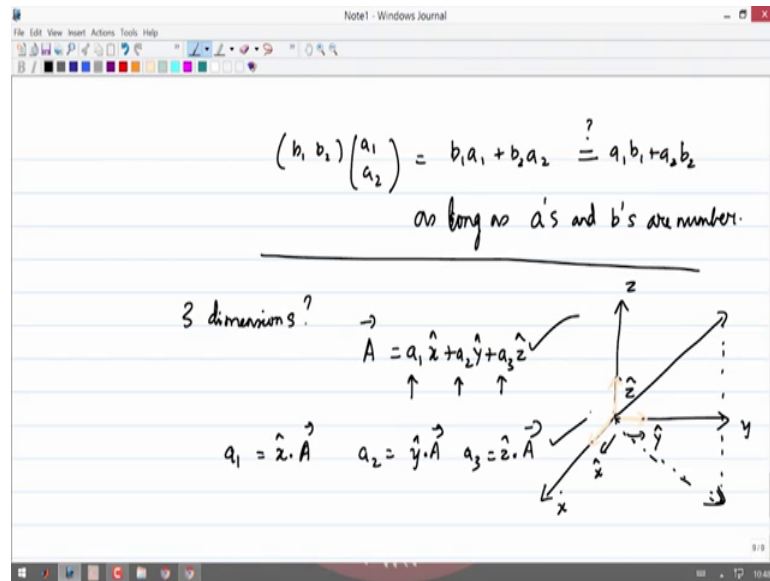 Note1 - Windows Journal
File Edit View Insert Actions Tools Help
B I
(b₁ b₂) (a₁ a₂) = b₁a₁ + b₂a₂ ?= a₁b₁ + a₂b₂
as long as a's and b's are number.
3 dimensions?
A⃗ = a₁x̂ + a₂ŷ + a₃ẑ
a₁ = x̂·A⃗ a₂ = ŷ·A⃗ a₃ = ẑ·A⃗
z
ẑ
y
ŷ
x̂
x
9/9